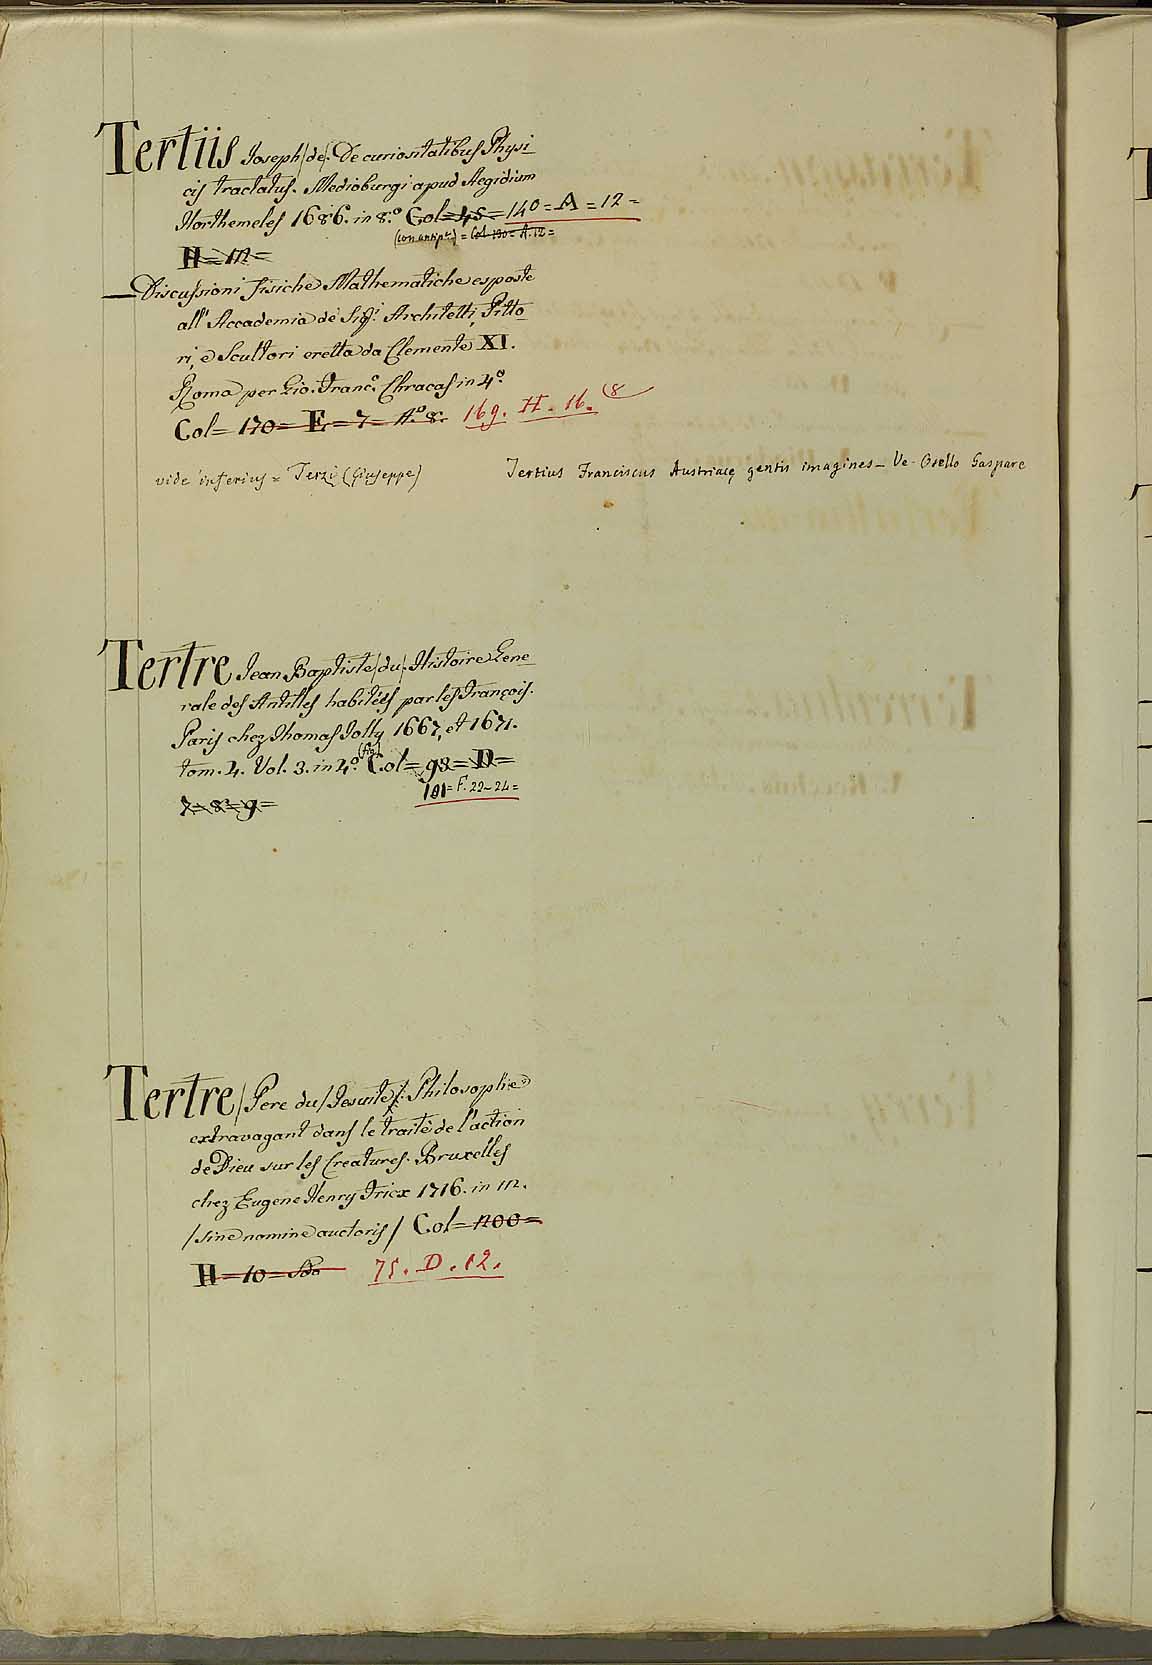 Tertiis Joseph /de/. De curiositatibus Physi
cis tractatus. Medioburgi apud Aegidium
Horthemeles 1686. in 8.º Col= 45 = 140 = A = 12 =
H = m = = Col 130 = A. 12 =
— Discussioni fisiche Mathematiche esposte
all' Accademia de' Sig.ri Architetti, Pitto
ri, e Scultori eretta da Clemente XI.
Roma per Gio. Franc.º Chracas in 4.º
Col= 170 = E = 7 = A.º 8. 169. H. 16. (8
vide inferius = Terzi (Giuseppe) Tertius Franciscus Austriacę gentis imagines – Ve. Osello Gaspare
Tertre Jean Baptiste /du/. Histoire Gene
rale des Antilles habiteés par les François.
Paris chez Thomas Jolly 1667, et 1671.
tom. 4. Vol. 3. in 4.º (fig.) Col= 98 = D =
7 = 8 = 9 = 101 = F. 22 – 24 =
Tertre /Pere du/ Jesuite /. Philosophe
extravagant dans le traité de l'action
de Dieu sur les Creatures. Bruxelles
chez Eugene Henry Fricx 1716. in m.
/sine nomine auctoris/ Col= 1200 =
H = 10 = 75. D. 12.